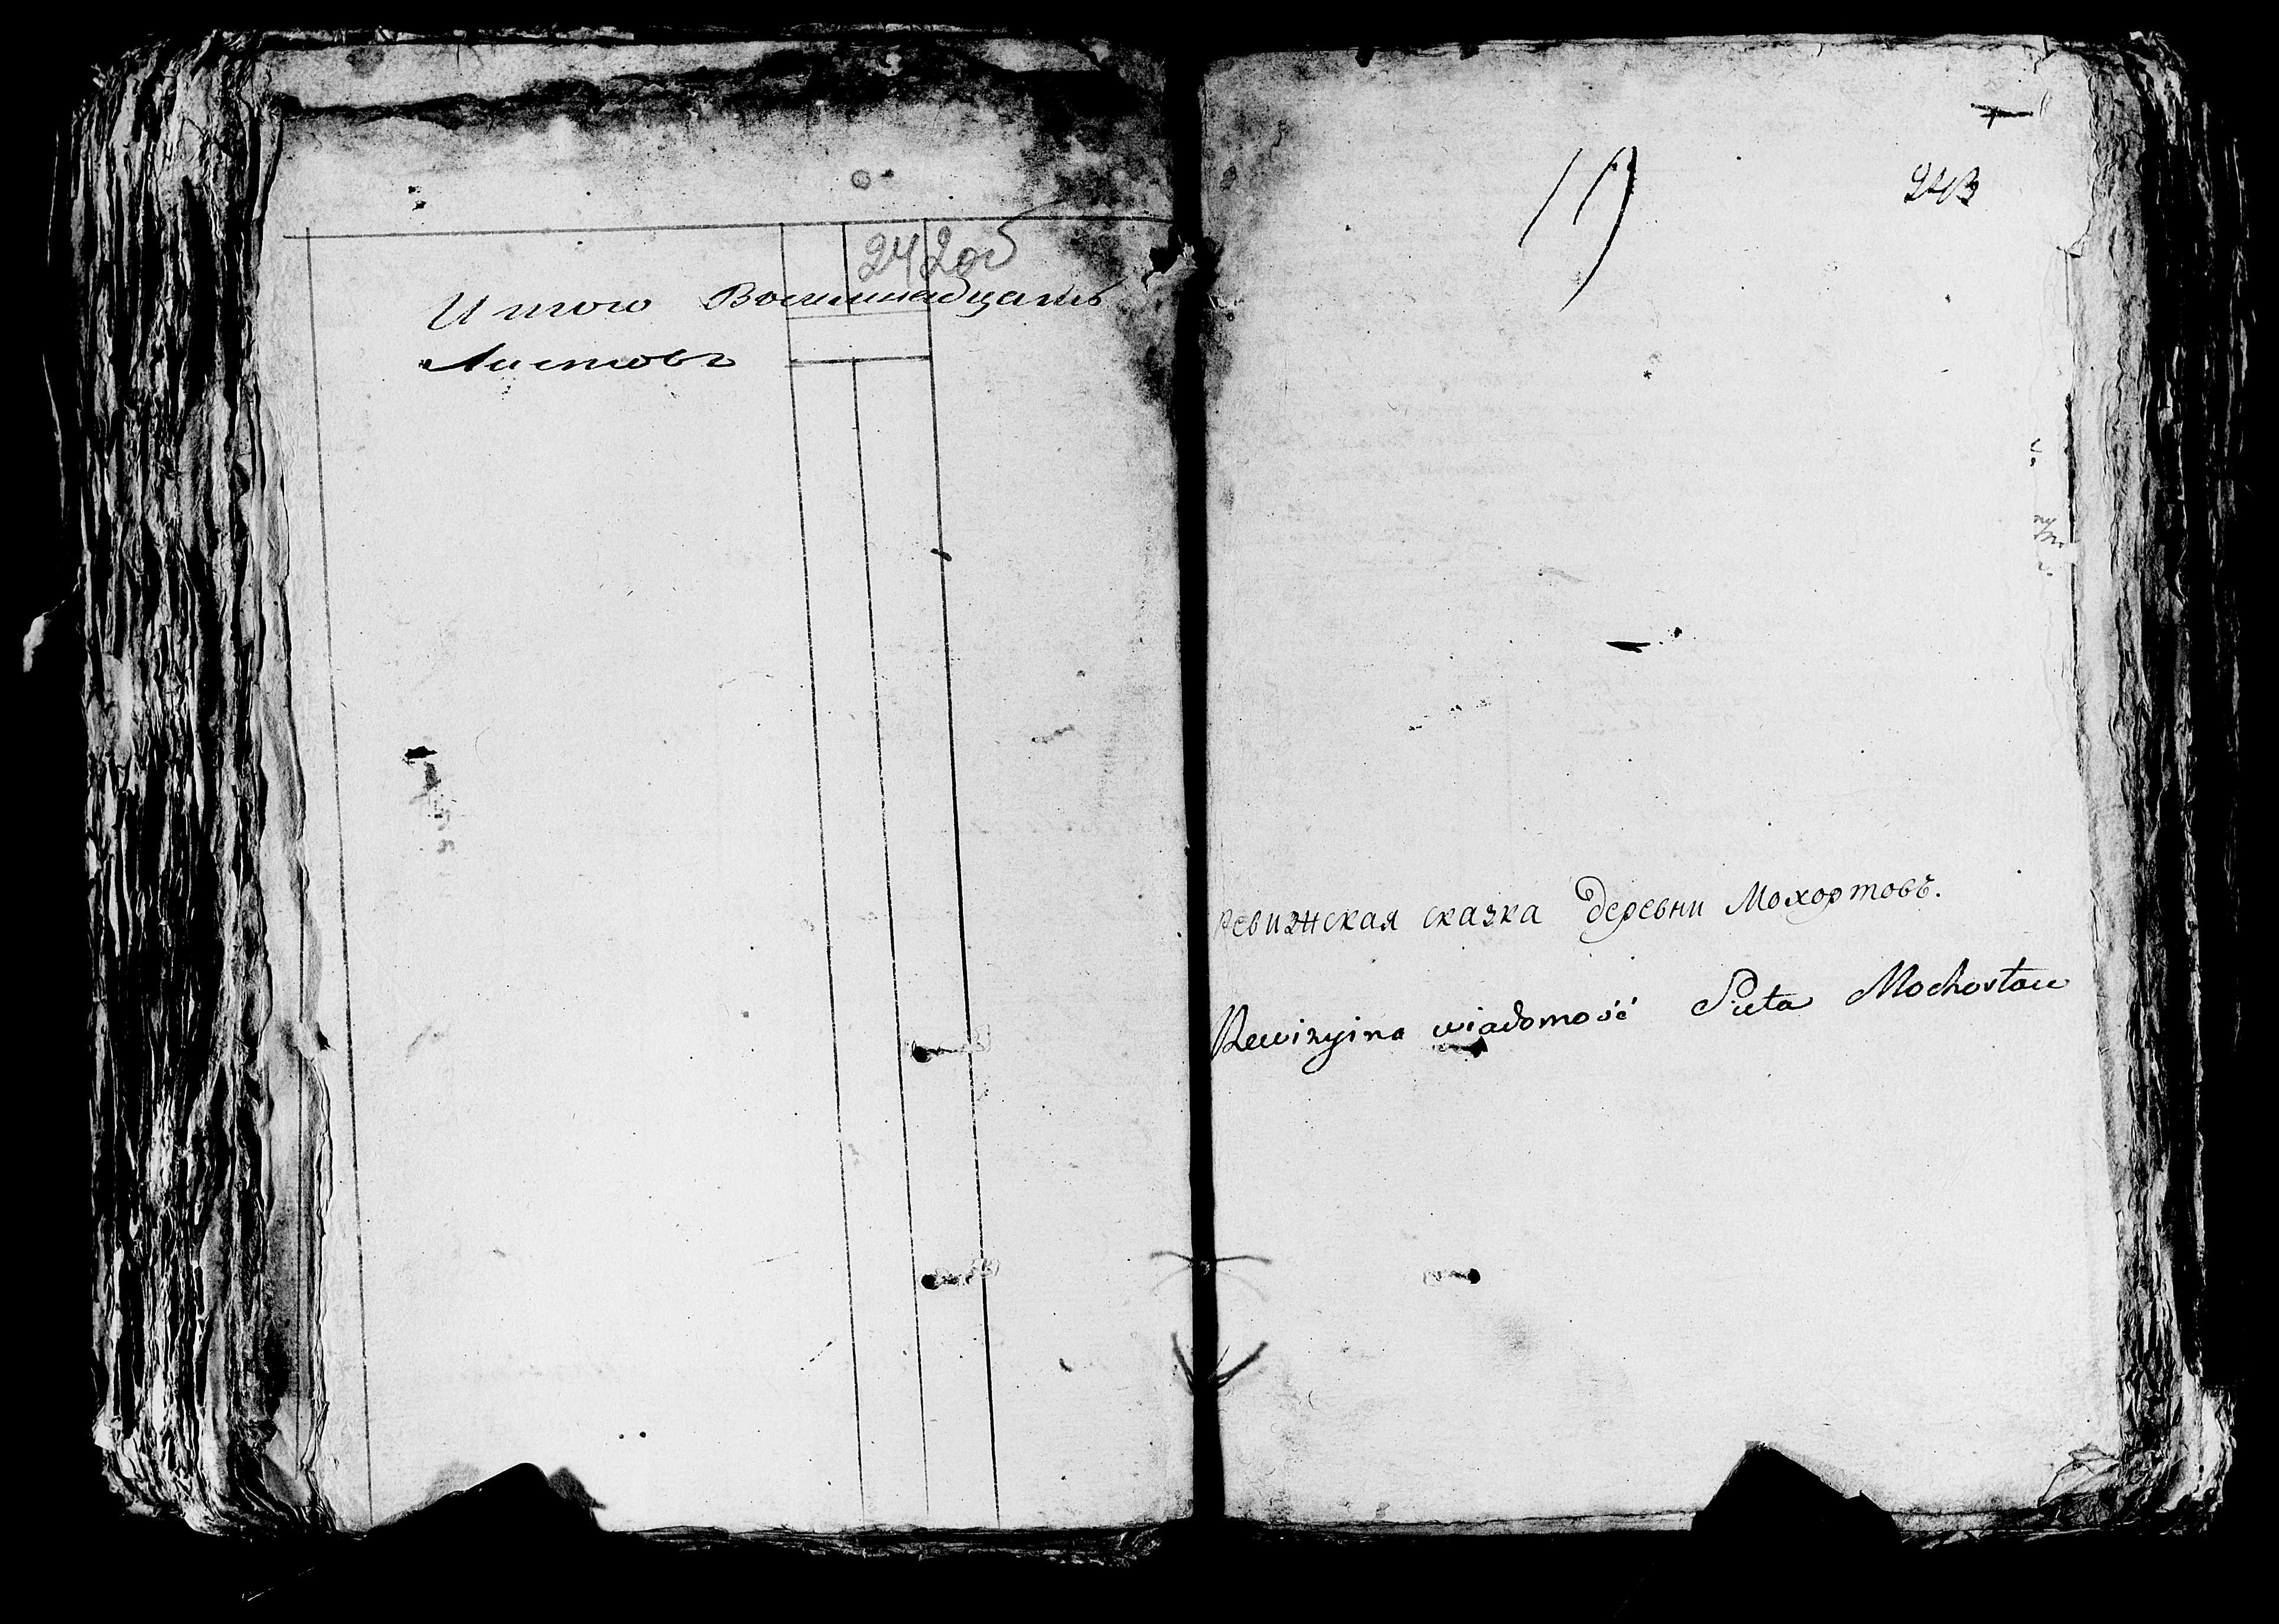 242об
Итого Восемнадцать
Листовъ
19
243
Ревижская сказка деревни Мохортовъ.
Rewizyina wiadomość Sieła Mochortow